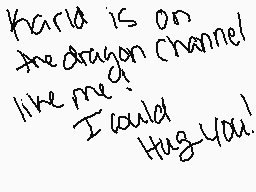 Karla is on
the dragon channel
like me!
I could
Hug you!